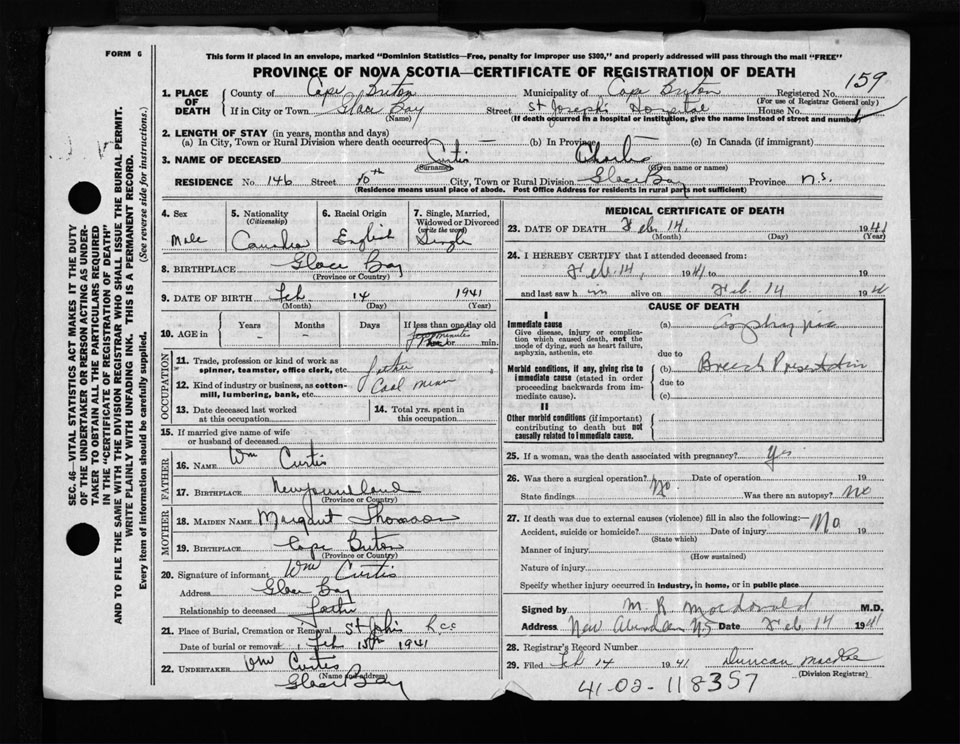 FORM 6
This form if placed in an envelope, marked "Dominion Statistics—Free, penalty for improper use $300," and properly addressed will pass through the mail "FREE"
PROVINCE OF NOVA SCOTIA—CERTIFICATE OF REGISTRATION OF DEATH
159
1. PLACE OF DEATH County of Cape Breton Municipality of Cape Breton Registered No.
(For use of Registrar General only)
If in City or Town Glace Bay Street St Joseph's Hospital House No.
(Name) (If death occurred in a hospital or institution, give the name instead of street and number)
2. LENGTH OF STAY (in years, months and days)
(a) In City, Town or Rural Division where death occurred (b) In Province (c) In Canada (if immigrant)
3. NAME OF DECEASED Curtis Charles
(Surname) (Given name or names)
RESIDENCE No. 146 Street 10th City, Town or Rural Division Glace Bay Province N.S.
(Residence means usual place of abode. Post Office Address for residents in rural parts not sufficient)
SEC. 46—VITAL STATISTICS ACT MAKES IT THE DUTY
OF THE UNDERTAKER OR PERSON ACTING AS UNDER-
TAKER TO OBTAIN ALL THE PARTICULARS REQUIRED
IN THE "CERTIFICATE OF REGISTRATION OF DEATH"
AND TO FILE THE SAME WITH THE DIVISION REGISTRAR WHO SHALL ISSUE THE BURIAL PERMIT.
WRITE PLAINLY WITH UNFADING INK. THIS IS A PERMANENT RECORD.
Every item of information should be carefully supplied. (See reverse side for instructions.)
4. Sex 5. Nationality 6. Racial Origin 7. Single, Married,
(Citizenship) Widowed or Divorced
(write the word)
Male Canadian English Single
8. BIRTHPLACE Glace Bay
(Province or Country)
9. DATE OF BIRTH Feb 14 1941
(Month) (Day) (Year)
10. AGE in Years Months Days If less than one day old
minutes
hrs. or min.
OCCUPATION
11. Trade, profession or kind of work as
spinner, teamster, office clerk, etc. father
12. Kind of industry or business, as cotton-
mill, lumbering, bank, etc. Coal miner
13. Date deceased last worked
at this occupation
14. Total yrs. spent in
this occupation
15. If married give name of wife
or husband of deceased
FATHER
16. NAME Wm Curtis
17. BIRTHPLACE Newfoundland
(Province or Country)
MOTHER
18. MAIDEN NAME Margaret Thomson
19. BIRTHPLACE Cape Breton
(Province or Country)
20. Signature of informant Wm Curtis
Address Glace Bay
Relationship to deceased father
21. Place of Burial, Cremation or Removal St John's
Date of burial or removal Feb 15th 1941
22. UNDERTAKER Wm Curtis
(Name and address)
Glace Bay
MEDICAL CERTIFICATE OF DEATH
23. DATE OF DEATH Feb 14, 1941
(Month) (Day) (Year)
24. I HEREBY CERTIFY that I attended deceased from:
Feb. 14, 1941 to 19
and last saw him alive on Feb. 14 1941
CAUSE OF DEATH
I
Immediate cause (a) Asphyxia
Give disease, injury or complica-
tion which caused death, not the
mode of dying, such as heart failure,
asphyxia, asthenia, etc due to
Morbid conditions, if any, giving rise to (b) Breech Presentation
immediate cause (stated in order due to
proceeding backwards from im-
mediate cause). (c)
II
Other morbid conditions (if important)
contributing to death but not
causally related to immediate cause.
25. If a woman, was the death associated with pregnancy? Yes
26. Was there a surgical operation? No Date of operation 19
State findings Was there an autopsy? No
27. If death was due to external causes (violence) fill in also the following:— No
Accident, suicide or homicide? Date of injury 19
(State which)
Manner of injury
(How sustained)
Nature of injury
Specify whether injury occurred in industry, in home, or in public place
Signed by M. R. MacDonald M.D.
Address New Aberdeen NS Date Feb 14 1941
28. Registrar's Record Number
29. Filed Feb 14 1941 Duncan
(Division Registrar)
41-02-118357